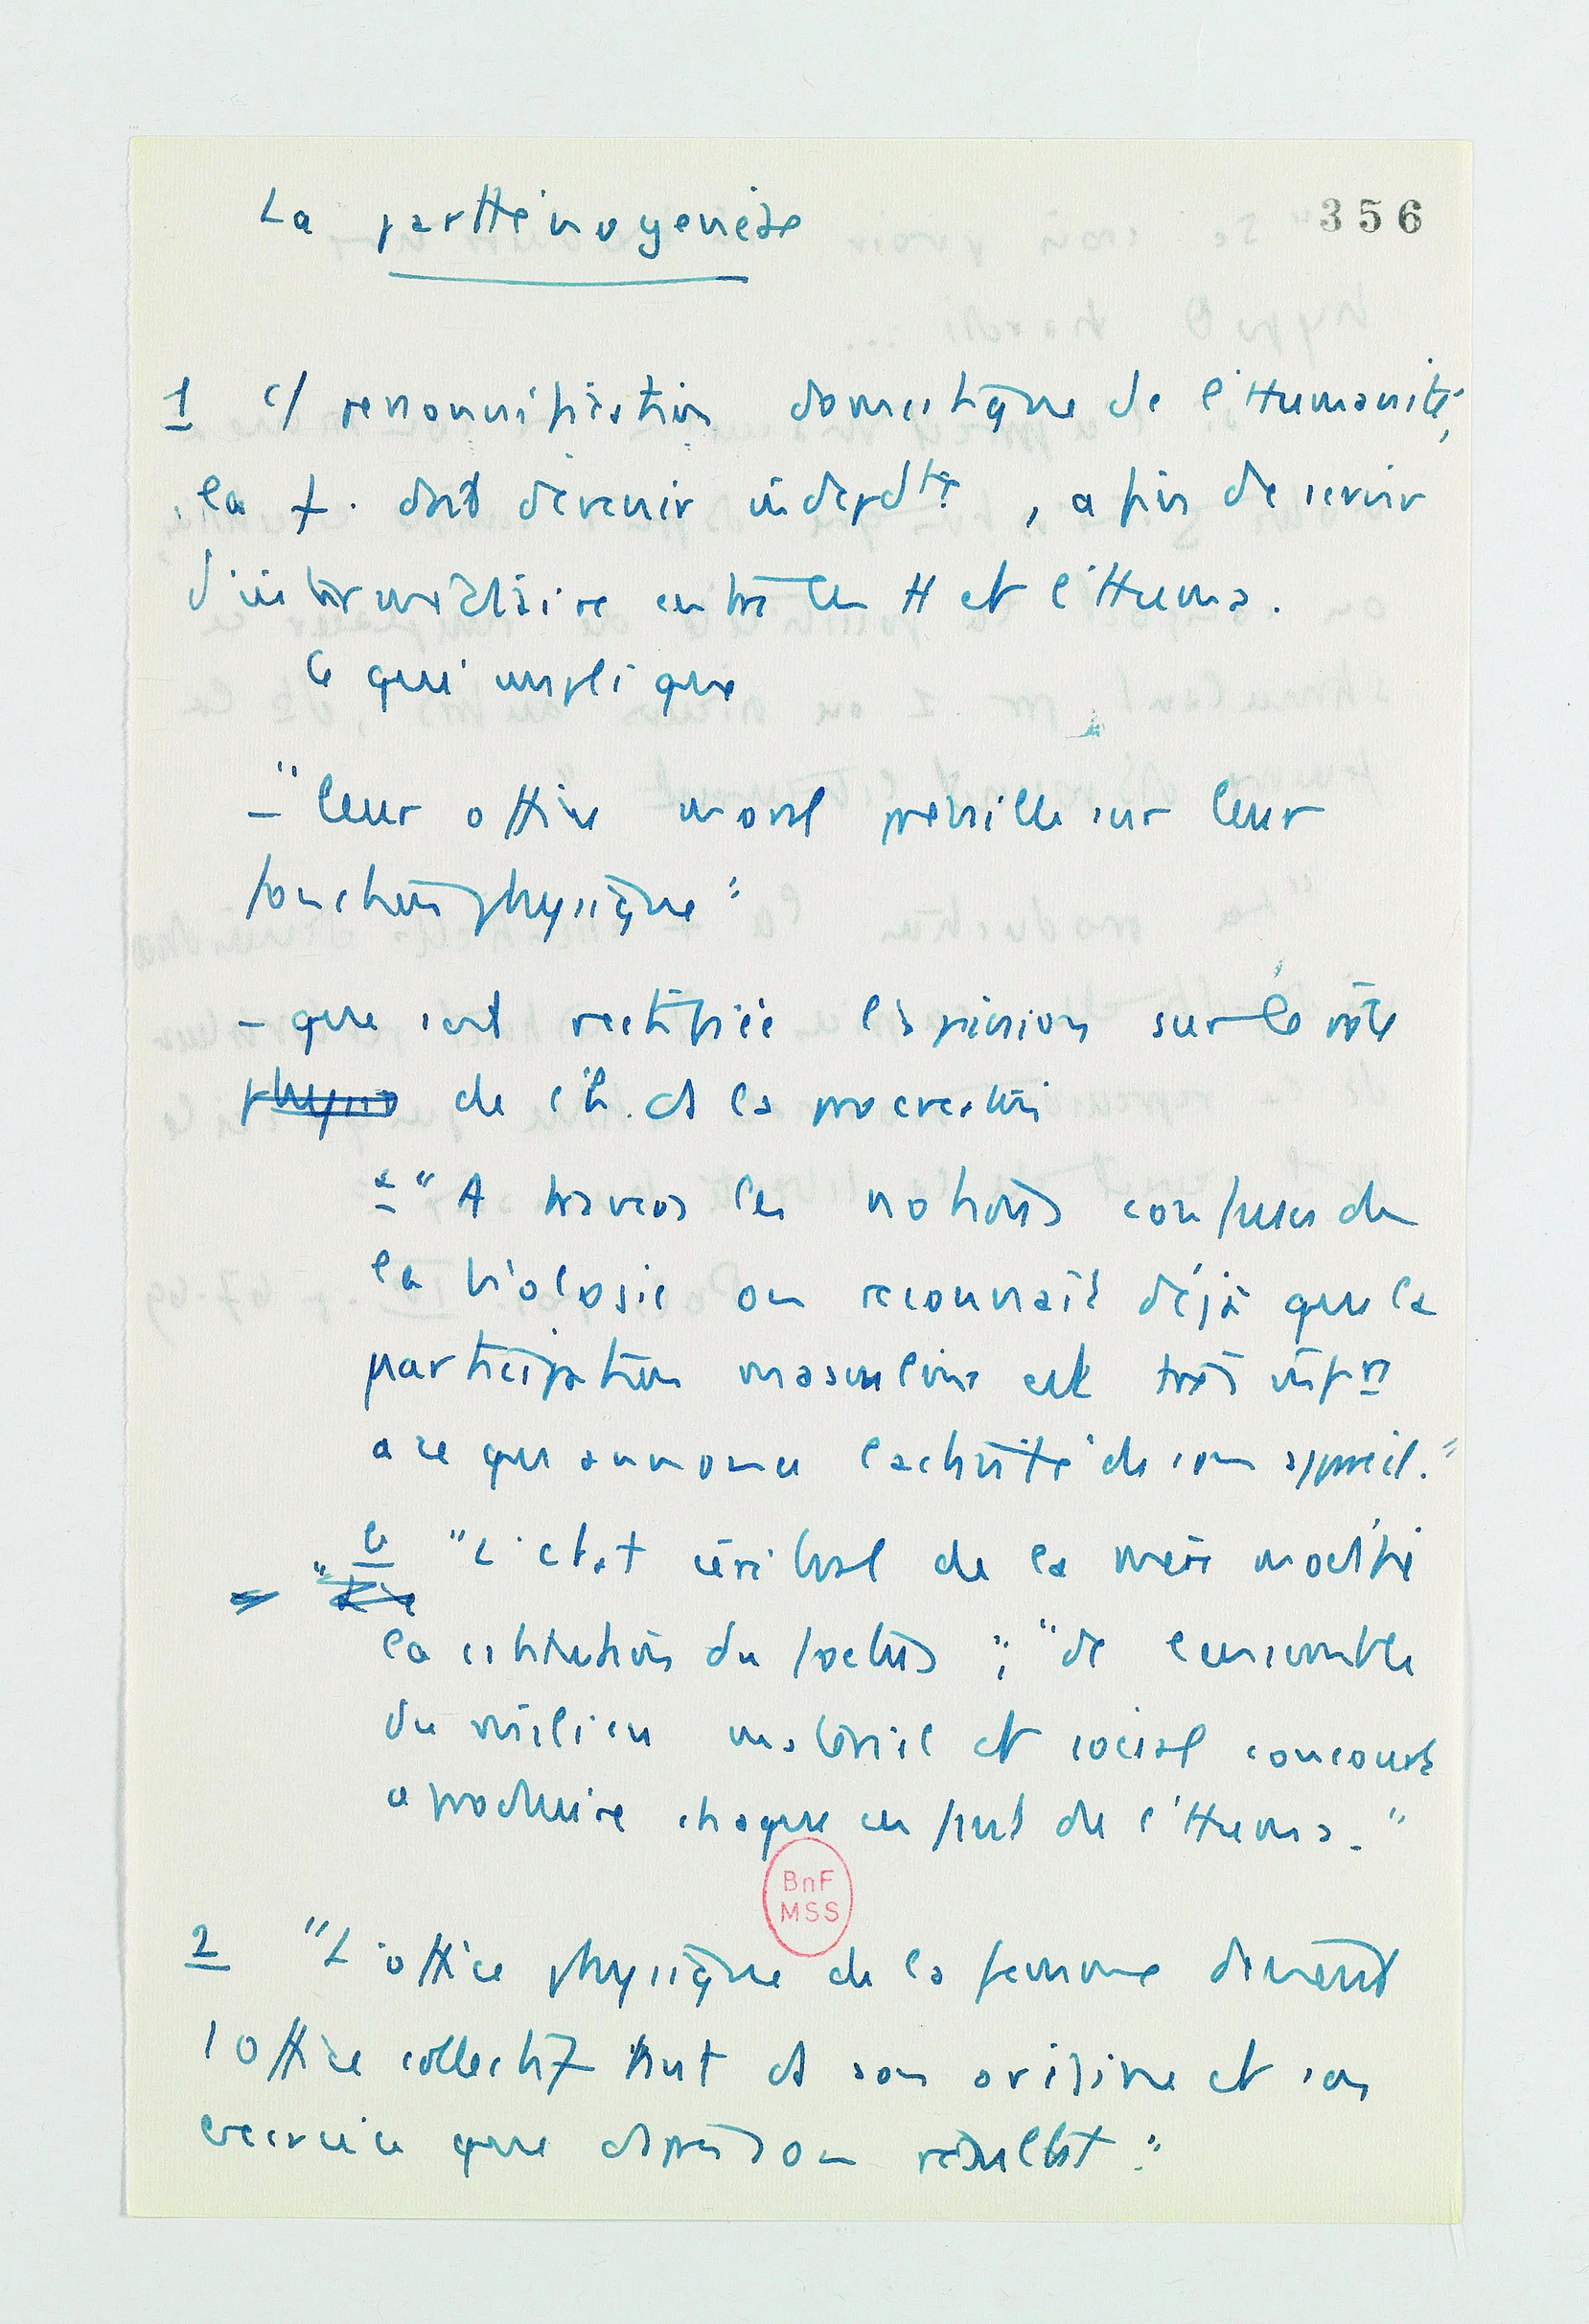 La parthénogenèse
356
1 c/ personnification domestique de l'Humanité,
la f. doit devenir indépdte, afin de servir
d'intermédiaire entre les H et l'Huma.
Ce qui implique
- "leur office moral prévaille sur leur
fonction physique"
- que soit rectifiée l'opinion sur le rôle
physio de l'h. ds la procréation
a "A travers les notions confuses de
la biologie on reconnaît déjà que la
participation masculine est très infre
à ce qu'annonce l'activité de son appareil."
b "L'état cérébral de la mère modifie
la situation du foetus"; "de l'ensemble
du milieu matériel et social concourt
à produire chaque enfant de l'Huma."
BnF
MSS
2 "L'office physique de la femme devient
1 office collectif tant ds son origine et son
exercice que d'après son résultat."